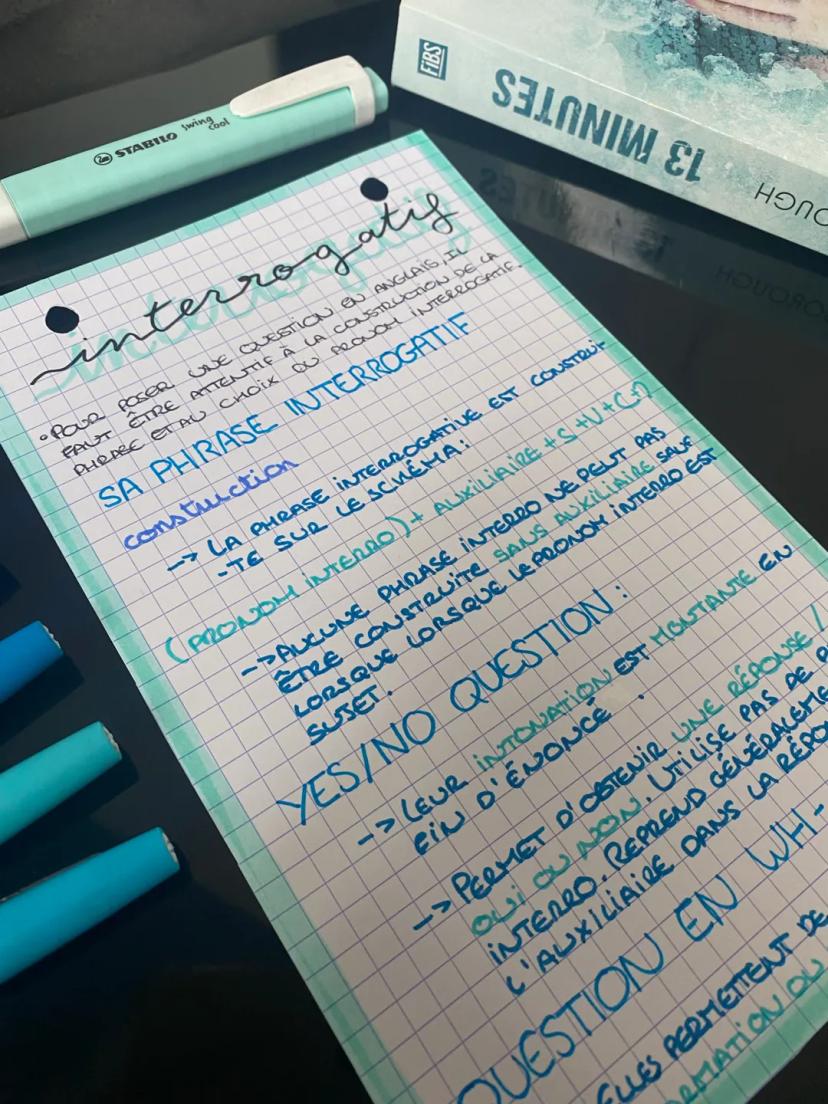 STABILO swing cool
FIBS
13 MINUTES
interrogatif
• POUR POSER UNE QUESTION EN ANGLAIS, IL
FAUT ÊTRE ATTENTIF À LA CONSTRUCTION DE LA
PHRASE ET AU CHOIX DU PRONOM INTERROGATIF.
SA PHRASE INTERROGATIF
construction
-> LA PHRASE INTERROGATIVE EST CONSTRUI-
-TE SUR LE SCHÉMA:
(PRONOM INTERRO) + AUXILIAIRE + S + V + C + ?
-> AUCUNE PHRASE INTERRO NE PEUT PAS
ÊTRE CONSTRUITE SANS AUXILIAIRE SAUF
LORSQUE LORSQUE LE PRONOM INTERRO EST
SUJET.
YES/NO QUESTION:
-> LEUR INTONATION EST MONTANTE EN
FIN D'ÉNONCÉ.
-> PERMET D'OBTENIR UNE RÉPONSE /
OUI OU NON. UTILISE PAS DE
INTERRO. REPREND
L'AUXILIAIRE DANS LA
QUESTION EN WH-
ELLES PERMETTENT DE
OU